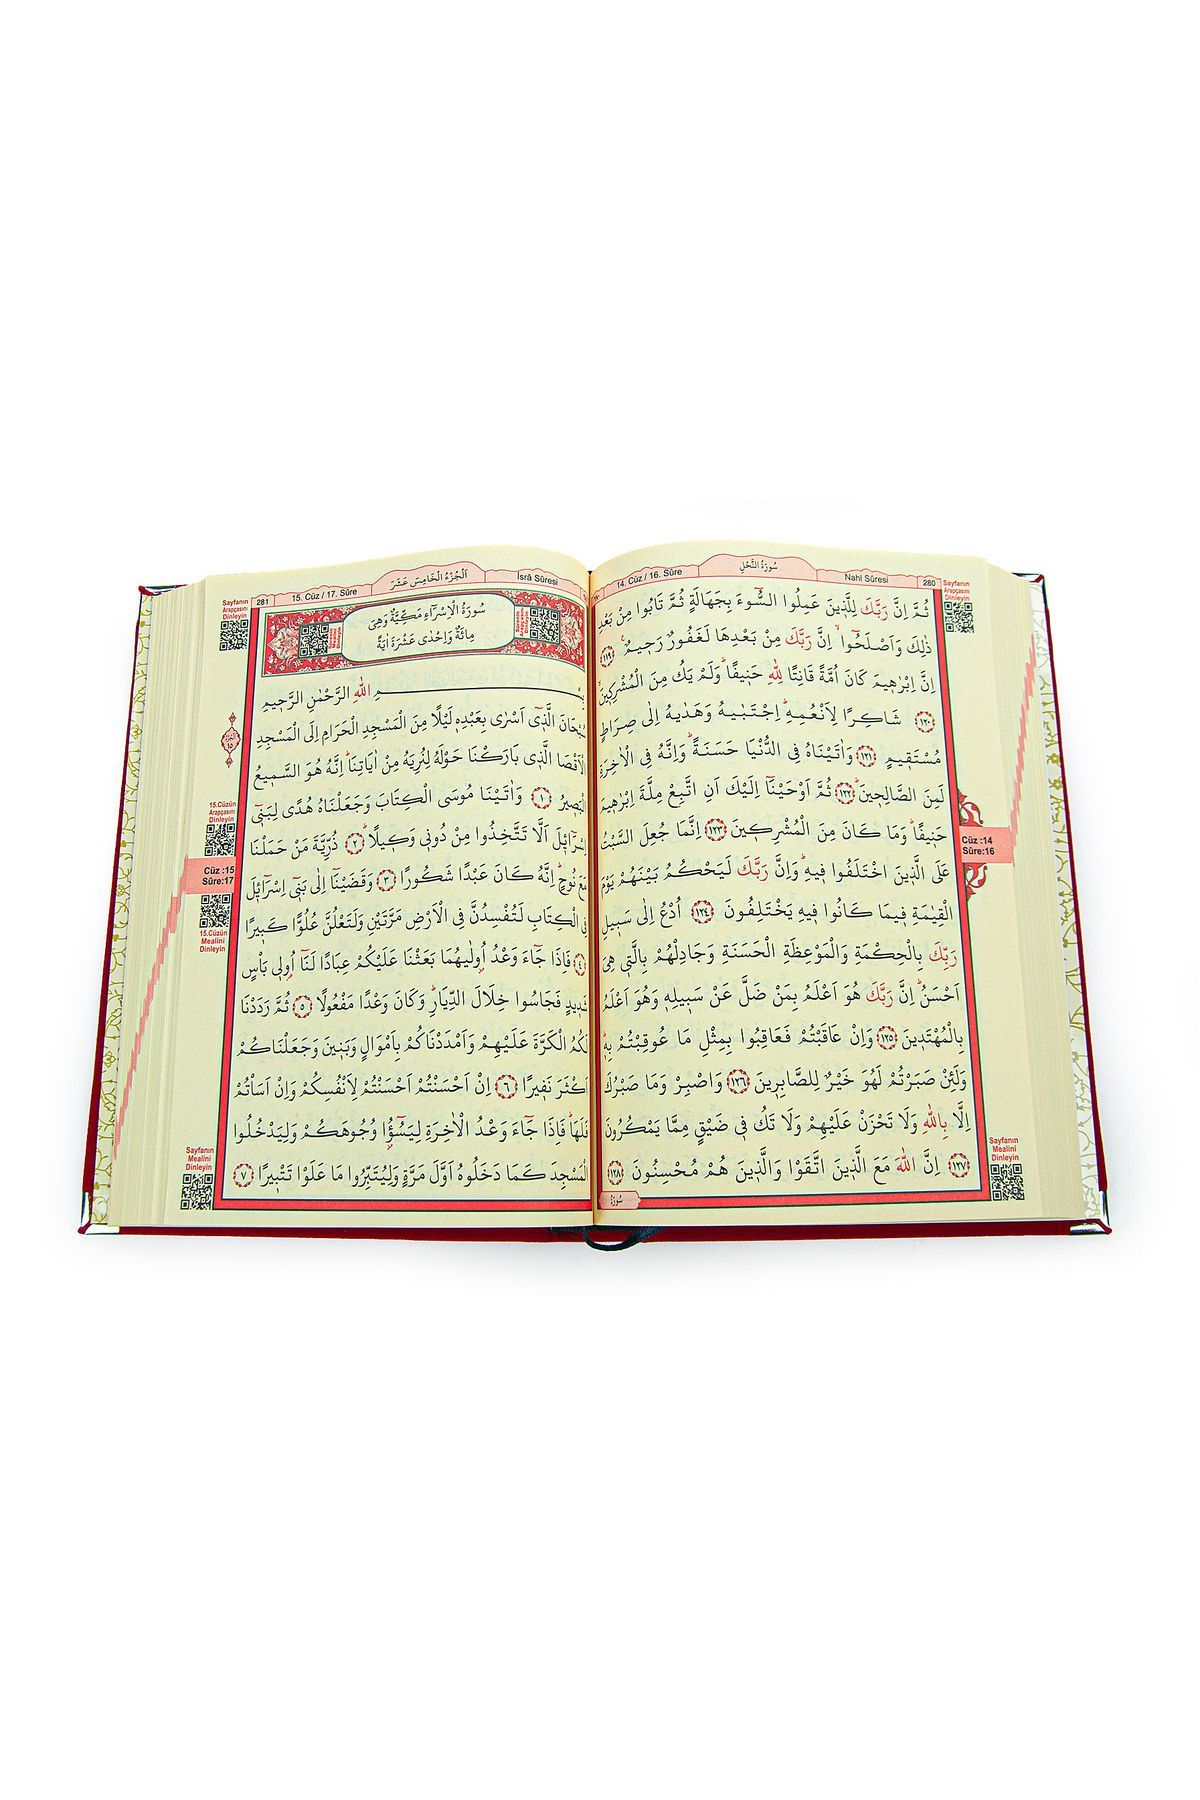 Sayfanın
Arapçasını
Dinleyin
280
Nahl Sûresi
سُورَةُ النَّحْلِ
14. Cüz / 16. Sûre
ثُمَّ اِنَّ رَبَّكَ لِلَّذ۪ينَ عَمِلُوا السُّٓوءَ بِجَهَالَةٍ ثُمَّ تَابُوا مِنْ بَعْدِ
ذٰلِكَ وَاَصْلَحُٓواۙ اِنَّ رَبَّكَ مِنْ بَعْدِهَا لَغَفُورٌ رَح۪يمٌ۟ ﴿١١٩﴾
اِنَّ اِبْرٰه۪يمَ كَانَ اُمَّةً قَانِتًا لِلّٰهِ حَن۪يفًاۜ وَلَمْ يَكُ مِنَ الْمُشْرِك۪ينَۙ
﴿١٢٠﴾ شَاكِرًا لِاَنْعُمِهِۜ اِجْتَبٰيهُ وَهَدٰيهُ اِلٰى صِرَاطٍ
مُسْتَق۪يمٍ ﴿١٢١﴾ وَاٰتَيْنَاهُ فِي الدُّنْيَا حَسَنَةًۜ وَاِنَّهُ فِي الْاٰخِرَةِ
لَمِنَ الصَّالِح۪ينَۜ ﴿١٢٢﴾ ثُمَّ اَوْحَيْنَٓا اِلَيْكَ اَنِ اتَّبِعْ مِلَّةَ اِبْرٰه۪يمَ
حَن۪يفًاۜ وَمَا كَانَ مِنَ الْمُشْرِك۪ينَ ﴿١٢٣﴾ اِنَّمَا جُعِلَ السَّبْتُ
عَلَى الَّذ۪ينَ اخْتَلَفُوا ف۪يهِۜ وَاِنَّ رَبَّكَ لَيَحْكُمُ بَيْنَهُمْ يَوْمَ
الْقِيٰمَةِ ف۪يمَا كَانُوا ف۪يهِ يَخْتَلِفُونَ ﴿١٢٤﴾ اُدْعُ اِلٰى سَب۪يلِ
رَبِّكَ بِالْحِكْمَةِ وَالْمَوْعِظَةِ الْحَسَنَةِ وَجَادِلْهُمْ بِالَّت۪ي هِيَ
اَحْسَنُۜ اِنَّ رَبَّكَ هُوَ اَعْلَمُ بِمَنْ ضَلَّ عَنْ سَب۪يلِه۪ وَهُوَ اَعْلَمُ
بِالْمُهْتَد۪ينَ ﴿١٢٥﴾ وَاِنْ عَاقَبْتُمْ فَعَاقِبُوا بِمِثْلِ مَا عُوقِبْتُمْ بِه۪ۜ
وَلَئِنْ صَبَرْتُمْ لَهُوَ خَيْرٌ لِلصَّابِر۪ينَ ﴿١٢٦﴾ وَاصْبِرْ وَمَا صَبْرُكَ
اِلَّا بِاللّٰهِ وَلَا تَحْزَنْ عَلَيْهِمْ وَلَا تَكُ ف۪ي ضَيْقٍ مِمَّا يَمْكُرُونَ
﴿١٢٧﴾ اِنَّ اللّٰهَ مَعَ الَّذ۪ينَ اتَّقَوْا وَالَّذ۪ينَ هُمْ مُحْسِنُونَ ﴿١٢٨﴾
سُورَةُ
Cüz :14
Sûre:16
Sayfanın
Mealini
Dinleyin
İsrâ Sûresi
اَلْجُزْءُ الْخَامِسَ عَشَرَ
15. Cüz / 17. Sûre
281
Sayfanın
Arapçasını
Dinleyin
سُورَةُ الْاِسْرَٓاءِ مَكِّيَّةٌ وَهِيَ
مِائَةٌ وَاِحْدٰى عَشْرَةَ اٰيَةً
ـمِ اللّٰهِ الرَّحْمٰنِ الرَّح۪يمِ
ـبْحَانَ الَّذ۪ٓي اَسْرٰى بِعَبْدِه۪ لَيْلًا مِنَ الْمَسْجِدِ الْحَرَامِ اِلَى الْمَسْجِدِ
الْاَقْصَا الَّذ۪ي بَارَكْنَا حَوْلَهُ لِنُرِيَهُ مِنْ اٰيَاتِنَاۜ اِنَّهُ هُوَ السَّم۪يعُ
الْبَص۪يرُ ﴿١﴾ وَاٰتَيْنَا مُوسَى الْكِتَابَ وَجَعَلْنَاهُ هُدًى لِبَن۪ٓي
اِسْرَٓائ۪لَ اَلَّا تَتَّخِذُوا مِنْ دُون۪ي وَك۪يلًاۜ ﴿٢﴾ ذُرِّيَّةَ مَنْ حَمَلْنَا
مَعَ نُوحٍۜ اِنَّهُ كَانَ عَبْدًا شَكُورًا ﴿٣﴾ وَقَضَيْنَٓا اِلٰى بَن۪ٓي اِسْرَٓائ۪لَ
فِي الْكِتَابِ لَتُفْسِدُنَّ فِي الْاَرْضِ مَرَّتَيْنِ وَلَتَعْلُنَّ عُلُوًّا كَب۪يرًا
﴿٤﴾ فَاِذَا جَٓاءَ وَعْدُ اُو۫لٰيهُمَا بَعَثْنَا عَلَيْكُمْ عِبَادًا لَنَٓا اُو۬ل۪ي بَأْسٍ
شَد۪يدٍ فَجَاسُوا خِلَالَ الدِّيَارِۜ وَكَانَ وَعْدًا مَفْعُولًا ﴿٥﴾ ثُمَّ رَدَدْنَا
لَكُمُ الْكَرَّةَ عَلَيْهِمْ وَاَمْدَدْنَاكُمْ بِاَمْوَالٍ وَبَن۪ينَ وَجَعَلْنَاكُمْ
اَكْثَرَ نَف۪يرًا ﴿٦﴾ اِنْ اَحْسَنْتُمْ اَحْسَنْتُمْ لِاَنْفُسِكُمْ وَاِنْ اَسَأْتُمْ
فَلَهَاۜ فَاِذَا جَٓاءَ وَعْدُ الْاٰخِرَةِ لِيَسُٓؤُ۫ا وُجُوهَكُمْ وَلِيَدْخُلُوا
الْمَسْجِدَ كَمَا دَخَلُوهُ اَوَّلَ مَرَّةٍ وَلِيُتَبِّرُوا مَا عَلَوْا تَتْب۪يرًا ﴿٧﴾
15.Cüzün
Arapçasını
Dinleyin
Cüz :15
Sûre:17
15.Cüzün
Mealini
Dinleyin
Sayfanın
Mealini
Dinleyin